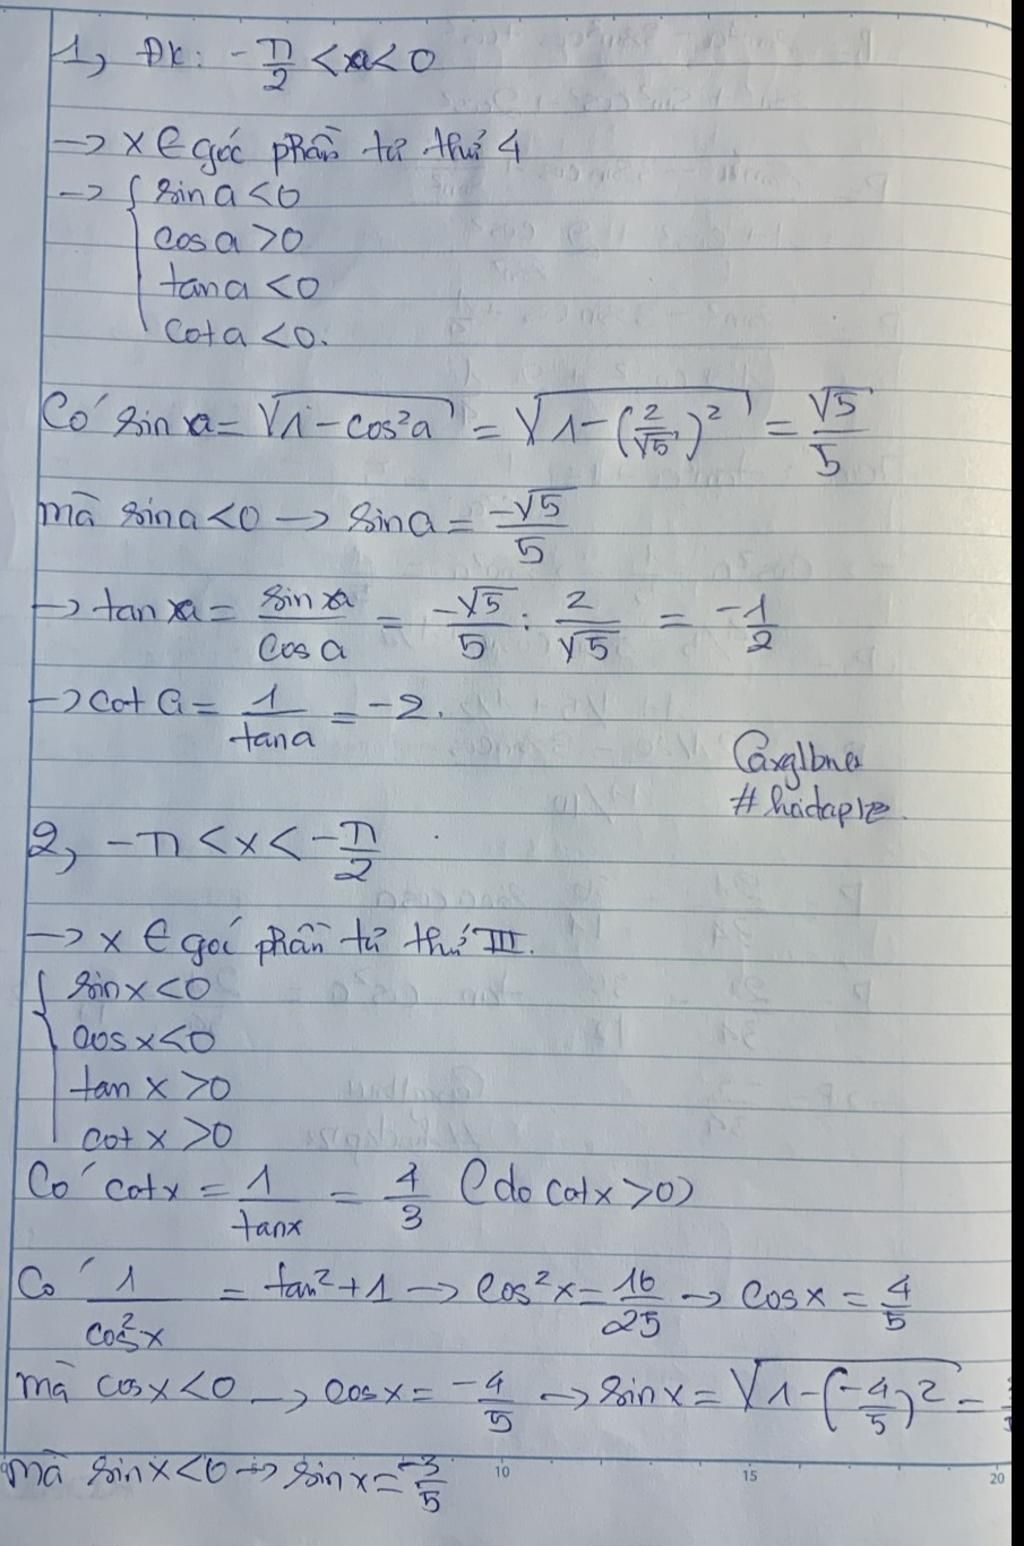 1, ĐK: -π/2 < a < 0
→ x ∈ góc phần tư thứ 4
→ { sin a < 0
cos a > 0
tan a < 0
cot a < 0.
Có sin a = √(1 - cos²a) = √(1 - (2/√5)²) = √5/5
mà sin a < 0 → sin a = -√5/5
→ tan a = sin a/cos a = -√5/5 : 2/√5 = -1/2
→ cot a = 1/tan a = -2.
2, -π < x < -π/2
→ x ∈ goć phần tử thứ III.
{ sin x < 0
cos x < 0
tan x > 0
cot x > 0
Có cot x = 1/tan x = 4/3 (do cot x > 0)
Có 1/cos²x = tan² + 1 → cos²x = 16/25 → cos x = 4/5
mà cos x < 0 → cos x = -4/5 → sin x = √(1 - (-4/5)²) =
mà sin x < 0 → sin x = -3/5
10 15 20